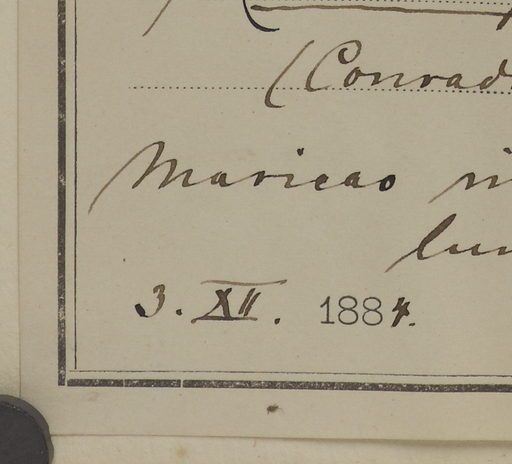 (Conrad
Maricao
3. XII. 1884.